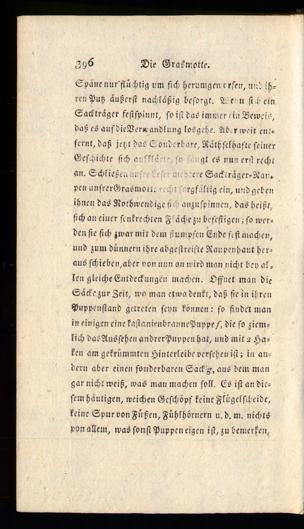 396 Die Grasmotte.
Späne nur flüchtig um sich herumgeworfen, und ih-
ren Putz äußerst nachläßig besorgt. Wenn sich ein
Sackträger festspinnt, so ist das immer ein Beweis,
daß es auf die Verwandlung losgehe. Aber weit ent-
fernt, daß jetzt das Sonderbare, Räthselhafte seiner
Geschichte sich aufklärte, so fängt es nun erst recht
an. Schließen unsre Leser mehrere Sackträger-Rau-
pen unsrer Grasmotte recht sorgfältig ein, und geben
ihnen das Nothwendige sich anzuspinnen, das heißt,
sich an einer senkrechten Fläche zu befestigen; so wer-
den sie sich zwar mit dem stumpfen Ende fest machen,
und zum dünnern ihre abgestreifte Raupenhaut her-
aus schieben, aber von nun an wird man nicht bey al-
len gleiche Entdeckungen machen. Öffnet man die
Säcke zur Zeit, wo man etwa denkt, daß sie in ihren
Puppenstand getreten seyn können: so findet man
in einigen eine kastanienbraune Puppe f, die so ziem-
lich das Aussehen andrer Puppen hat, und mit 2 Ha-
ken am gekrümmten Hinterleibe versehen ist; in an-
dern aber einen sonderbaren Sack g, aus dem man
gar nicht weiß, was man machen soll. Es ist an die-
sem häutigen, weichen Geschöpf keine Flügelscheide,
keine Spur von Füßen, Fühlhörnern u. d. m. nichts
von allem, was sonst Puppen eigen ist, zu bemerken,